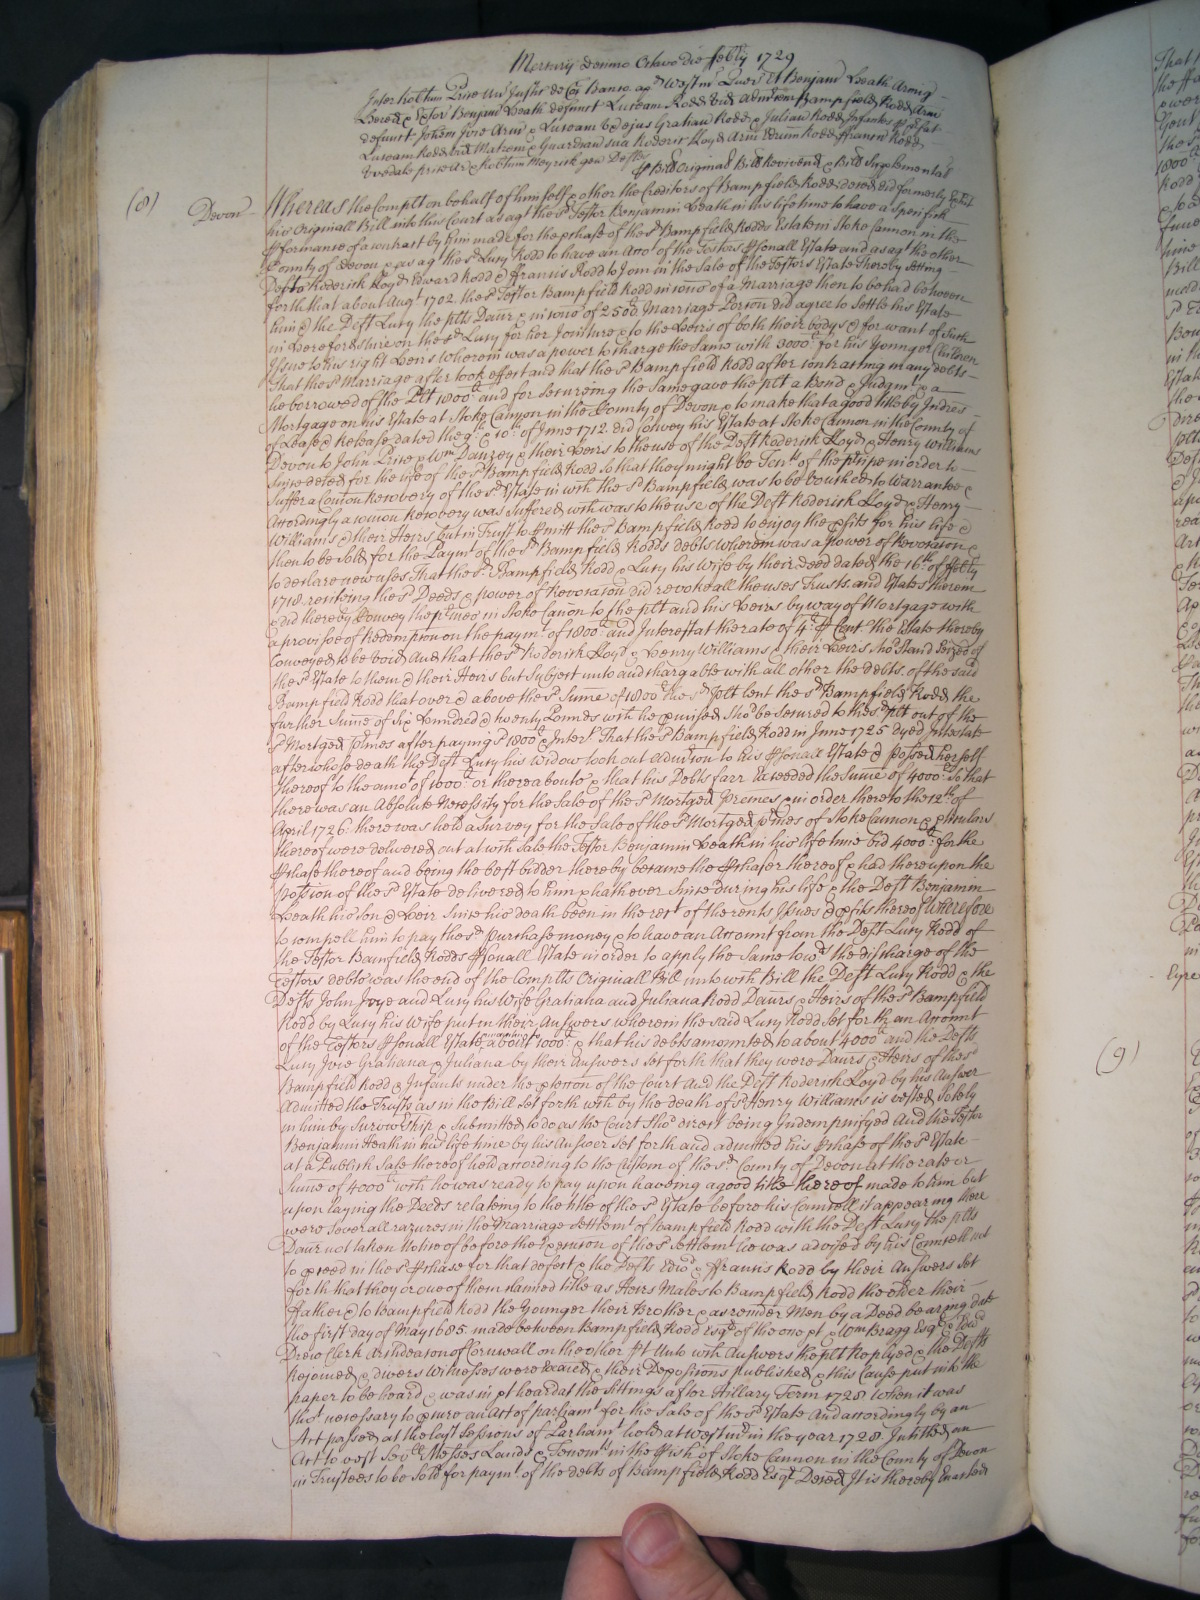 Mercury decimo Octavo die Febry 1729
Inter Price Un Justic de Banco apd Westmr Quer Et Benjam Heath Armig
Hered & Exor Benjam Heath defunct Luceam Rodd vid Admcem Bampfield Rodd Arm
defunct Johem Joie Arm & Luceam Ux ejus Gratian Rodd & Julian Rodd Infantes
Luceam Rodd vid Matrem & Guardian sua Roderic Lloyd Arm Edrum Rodd Francm Rodd
Meyrick gen Deftes
P Bill Original Bill Revivend & Bill Supplemental
(8)
Devon
Whereas the Complt on behalf of himself & other the Creditors of Bampfield Rodd deced did formerly Exhit
his Originall Bill into this Court as agt the sd Testor Benjamin Heath in his life time to have a Specifick
Pformance of a contract by him made for the pchase of the sd Bampfield Rodds Estate in Stoke Cannon in the
County of Devon & as agt the sd Lucy Rodd to have an Acct of the Testors Psonall Estate and as agt the other
Defts Roderick Lloyd Edward Rodd & Francis Rodd to Join in the Sale of the Testors Estate Thereby Setting
forth that about Augt 1702 the sd Testor Bampfield Rodd in conc of a Marriage then to be had between
him & the Deft Lucy the plts Daur & in conc of 2500£ Marriage Porcon did agree to Settle his Estate
in Herefordshire on the sd Lucy for her Jointure & to the Heirs of both their bodys & for want of Such
Issue to his right Heirs wherein was a power to charge the Same with 3000£ for his Younger Children
That the sd Marriage after took effect and that the sd Bampfield Rodd after contracting many debts
he borrowed of the Plt 1000£ and for Secureing the Same gave the plt a Bond & Judgmt & a
Mortgage on his Estate at Stoke Canyon in the County of Devon & to make that a good title by Indres
of Lease & Release dated the 9th & 10th of June 1712 did Convey his Estate at Stoke Cannon in the County of
Devon to John Price & Wm Dauzey & their Heirs to the use of the Deft Roderick Lloyd & Henry Williams
Since deced for the life of the sd Bampfield Rodd So that they might be Tents of the pcipe in order to
Suffer a Comon Recovery of the sd Estate in wch the sd Bampfield was to be vouched to Warrantee &
Accordingly a comon Recovery was Suffered wch was to the use of the Deft Roderick Lloyd & Henry
Williams & their Heirs but in Trust to Pmitt the sd Bampfield Rodd to enjoy the pfits for his life &
then to be Sold for the Paymt of the sd Bampfield Rodds debts wherein was a power of Revocacon &
to declare new uses That the sd Bampfield Rodd & Lucy his Wife by their deed dated the 16th of Febry
1718 reciting the sd Deeds & power of Revocacon did revoke all the uses Trusts and Estates therein
& did thereby Convey the pmes in Stoke Canon to the plt and his Heirs by way of Mortgage with
a provisoe of Redempcon on the paymt of 1800£ and Interest at the rate of 4£ P Cent the Estate thereby
Conveyed to be void And that the sd Roderick Lloyd & Henry Williams & their Heirs shod Stand Seized of
the sd Estate to them & their Heirs but Subject unto and chargable with all other the debts of the said
Bampfield Rodd that over & above the sd Sume of 1800£ the sd plt lent the sd Bampfield Rodd the
further Sume of Six hundred & twenty Pounds wch he pmised shod be Secured to the sd plt out of the
sd Mortged pmes after paying sd 1800£ & Interst That the sd Bampfield Rodd in June 1725 dyed Intestate
after whose death the Deft Lucy his Widow took out Admcon to his Psonall Estate & possed herself
thereof to the amot of 1000£ or thereabouts & that his Debts farr Exceeded the Sume of 4000£ So that
there was an Absolute Necessity for the Sale of the sd Mortged Premes & in order thereto the 12th of
April 1726 there was held a Survey for the Sale of the sd Mortged pmes of Stoke Cannon & pticulars
thereof were delivered out at wch Sale the Testor Benjamin Heath in his life time bid 4000£ for the
Pchase thereof and being the best bidder thereby became the Pchaser thereof & had thereupon the
Possion of the sd Estate delivered to him & hath ever Since during his life & the Deft Benjamin
Heath his Son & Heir Since his death been in the rect of the rents Issues & pfits thereof Wherefore
to compell him to pay the sd Purchase money & to have an Account from the Deft Lucy Rodd of
the Testor Bamfield Rodds Psonall Estate in order to apply the Same towds the discharge of the
Testors debts was the end of the Complts Originall Bill unto wch Bill the Deft Lucy Rodd & the
Defts John Joye and Lucy his Wife Gratiana and Juliana Rodd Daurs & Heirs of the sd Bampfield
Rodd by Lucy his Wife put in their Answers wherein the said Lucy Rodd Set forth an Account
of the Testors Psonall Estate about 1000£ & that his debts amounted to about 4000£ and the Defts
Lucy Joie Gratiana & Juliana by their Answers set forth that they were Daurs & Heirs of the sd
Bampfield Rodd & Infants under the ptection of the Court And the Deft Roderick Lloyd by his Answer
Admitted the Trusts as in the Bill Set forth wch by the death of sd Henry Williams is vested Solely
in him by Survivorship & Submitted to do as the Court Shod direct being Indempnifyed And the Testor
Benjamin Heath in his life time by his Answer Set forth and admitted his Pchase of the sd Estate
at a Publick Sale thereof held according to the Custom of the sd County of Devon at the rate or
Sume of 4000£ wch he was ready to pay upon haveing a good title thereof made to him but
upon laying the Deeds relateing to the title of the sd Estate before his Councell it appearing there
were Severall razures in the Marriage Settlemt of Bampfield Rodd with the Deft Lucy the plts
Daur not taken Notice of before the Execucon of the sd Settlemt he was advised by his Councell not
to pceed in the sd Pchase for that defect & the Defts Edwd & Francis Rodd by their Answers Set
forth that they or one of them claimed title as Heirs Males to Bampfield Rodd the elder their
Father & to Bampfield Rodd the Younger their Brother & as remder Men by a Deed bearing date
the first day of May 1685 made between Bampfield Rodd Esqr of the one pt & Wm Bragg Esqr & Edwd
Drew Clerk Archdeacon of Cornwall on the other Pt Unto wch Answers the plt Replyed & the Defts
Rejoined & divers Witnesses were Exaied & their Deposicons published & this Cause put into the
paper to be heard & was in pt heard at the Sittings after Hillary Term 1728 When it was
thot necessary to pcure an Act of parliamt for the Sale of the sd Estate And accordingly by an
Act passed at the last Sessions of Parliamt held at Westmr in the year 1728 Intitled an
Act to vest Sevll Messes Lands & Tenemts in the Pish of Stoke Cannon in the County of Devon
in Trustees to be Sold for paymt of the debts of Bampfield Rodd Esqr Deced It is thereby Enacted
(9)